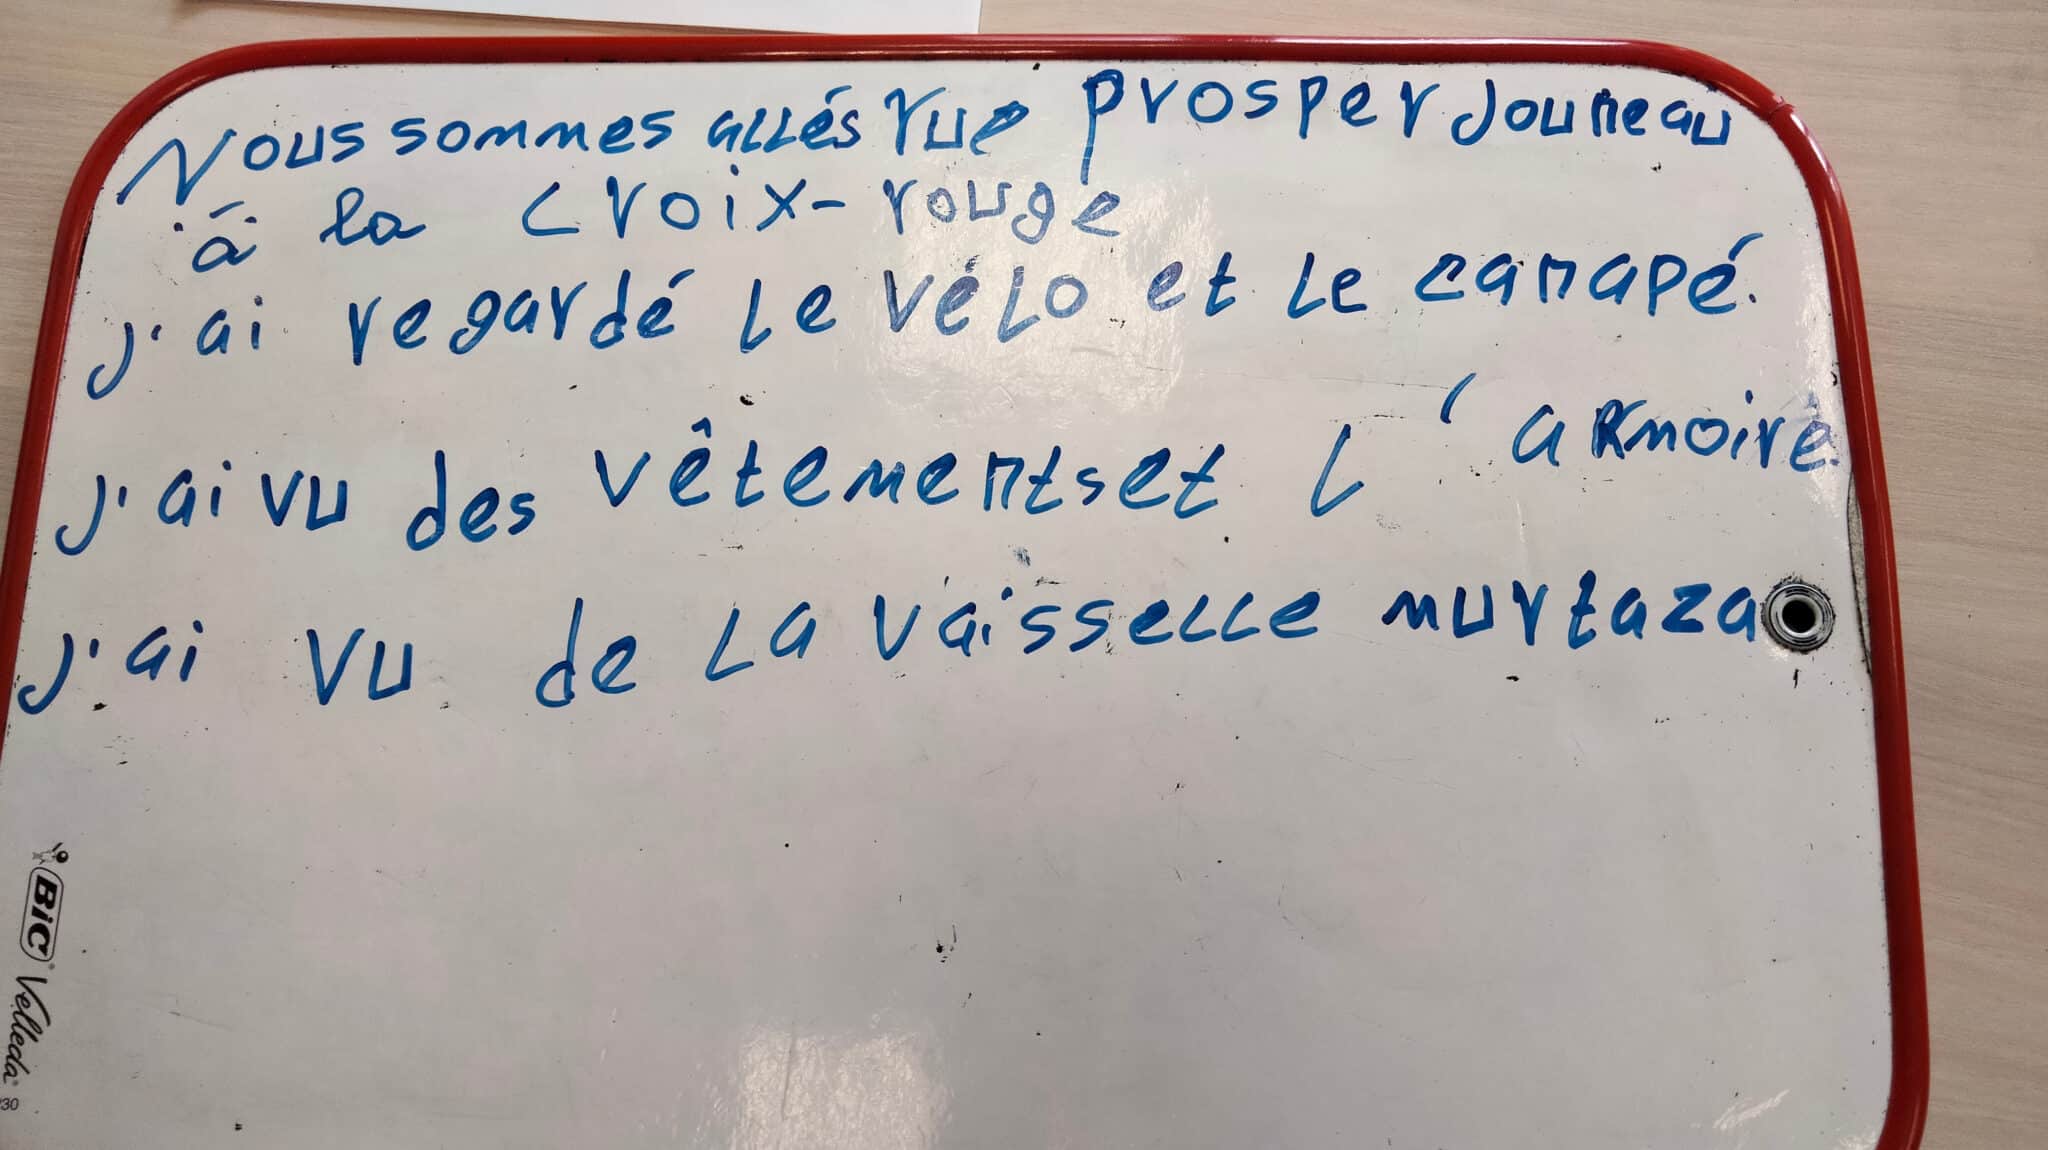 Nous sommes allés rue prosper Jouneau
à la croix-rouge
J'ai regardé le vélo et le canapé.
J'ai vu des vêtementset l'armoire.
J'ai vu de la vaisselle murtaza
BiC Velleda